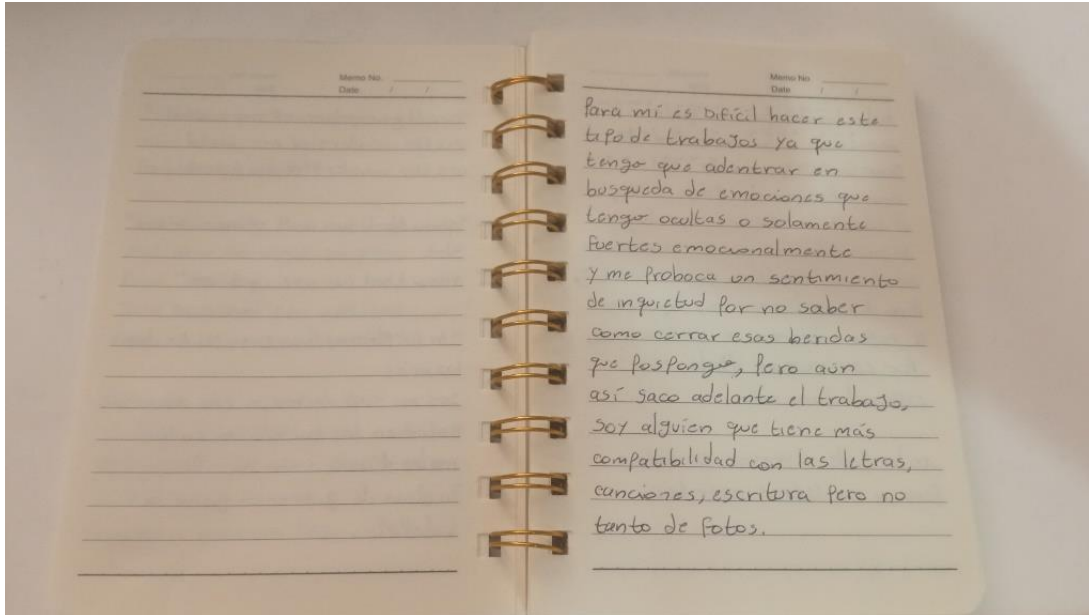 Memo No.
Date / /
Memo No
Date / /
Para mí es Difícil hacer este
tipo de trabajos ya que
tengo que adentrar en
busqueda de emociones que
tengo ocultas o solamente
fuertes emocionalmente
y me proboca un sentimiento
de inquietud por no saber
como cerrar esas heridas
que pospongo, pero aún
así saco adelante el trabajo,
soy alguien que tiene más
compatibilidad con las letras,
canciones, escritura pero no
tanto de fotos.